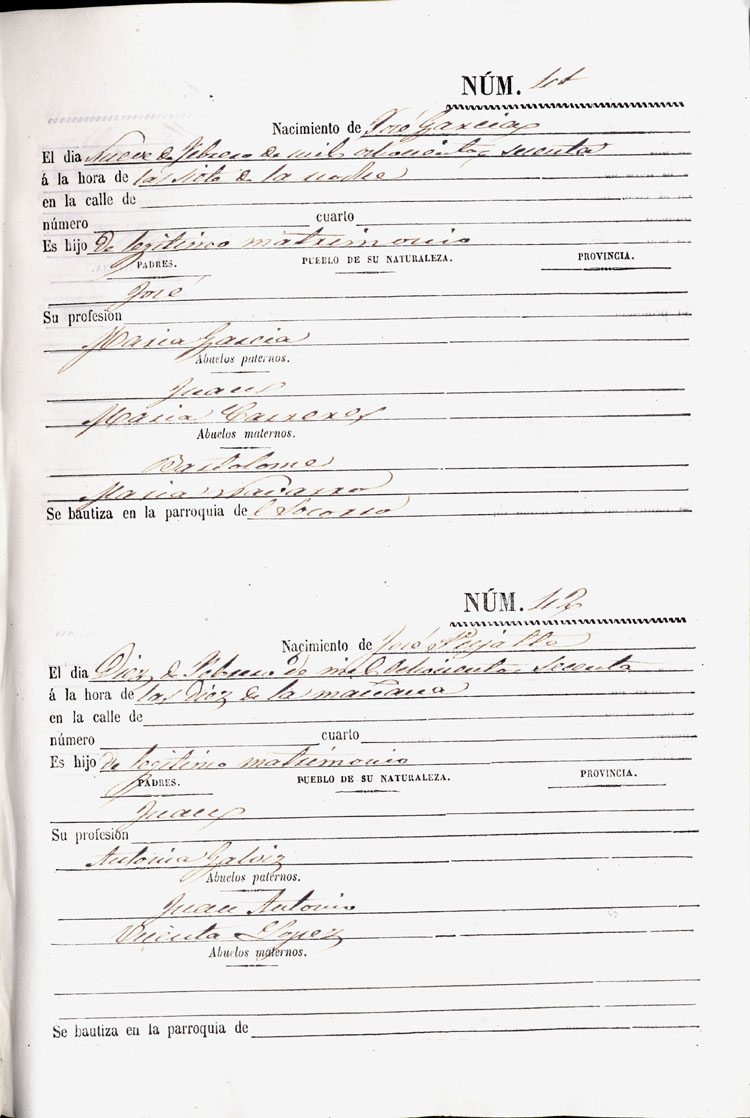 NÚM. 11
Nacimiento de José Garcia
El dia Nueve de Febrero de mil ochocientos secenta
á la hora de las siete de la noche
en la calle de
número cuarto
Es hijo de legitimo matrimonio
PADRES. PUEBLO DE SU NATURALEZA. PROVINCIA.
José
Su profesión
Maria Garcia
Abuelos paternos.
Juan
Maria Carreres
Abuelos maternos.
Bartolome
Maria Navarro
Se bautiza en la parroquia de l Socorro
NÚM. 12
Nacimiento de José
El dia Diez de Febrero de mil Ochocientos secenta
á la hora de las Diez de la mañana
en la calle de
número cuarto
Es hijo de legitimo matrimonio
PADRES. PUEBLO DE SU NATURALEZA. PROVINCIA.
Juan
Su profesión
Antonia Galviz
Abuelos paternos.
Juan Antonio
Vicenta Lopez
Abuelos maternos.
Se bautiza en la parroquia de